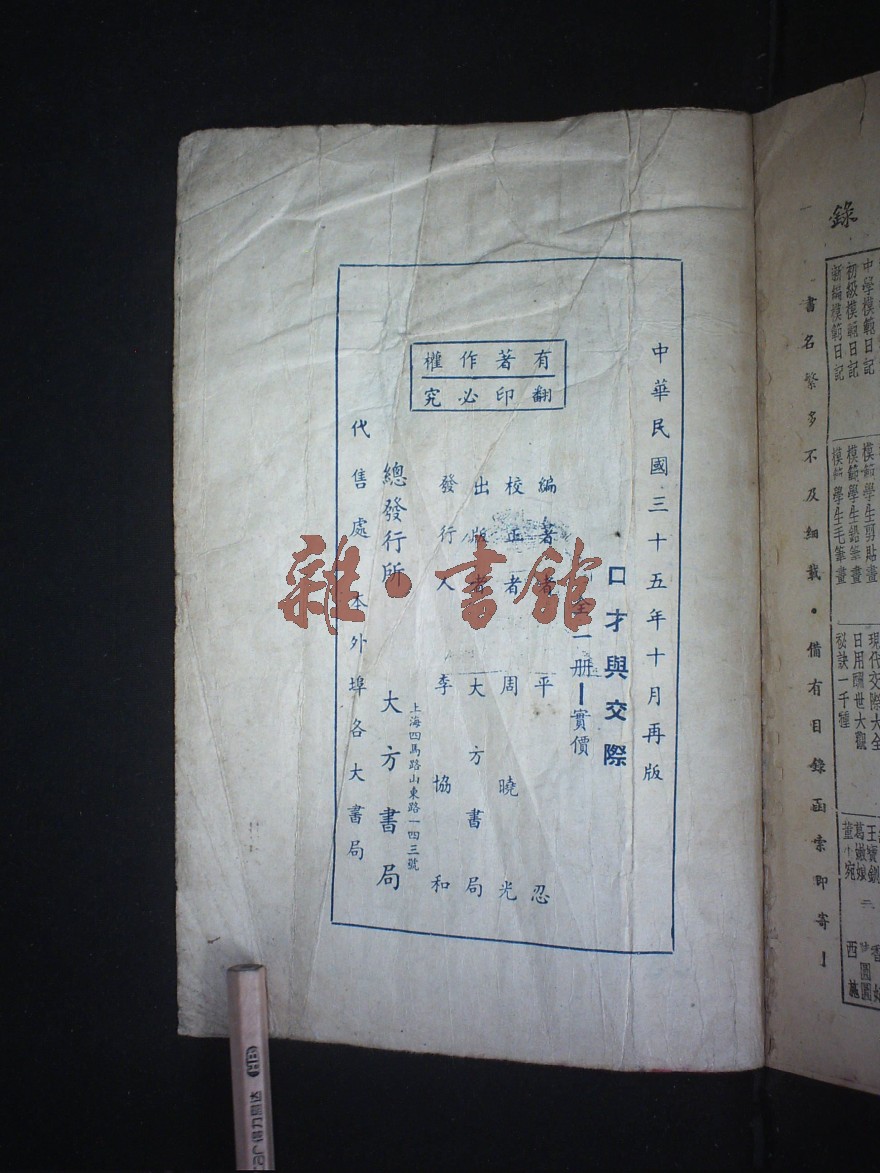 中華民國三十五年十月再版
口才與交際
全一册
實價
編著者 平忍
校正者 周曉光
出版者 大方書局
發行人 李協和
上海四馬路山東路一四三號
總發行所 大方書局
代售處 本外埠各大書局
有著作權
翻印必究
雜·書館
錄
一
書名繁多不及細載·備有目錄函索即寄!
中學模範日記
初級模範日記
新編模範日記
模範學生剪貼畫
模範學生鉛筆畫
模範學生毛筆畫
現代交際大全
日用酬世大觀
秘訣一千種
王寶釧
葛嫩娘
董小宛
陳圓圓
西施
得力